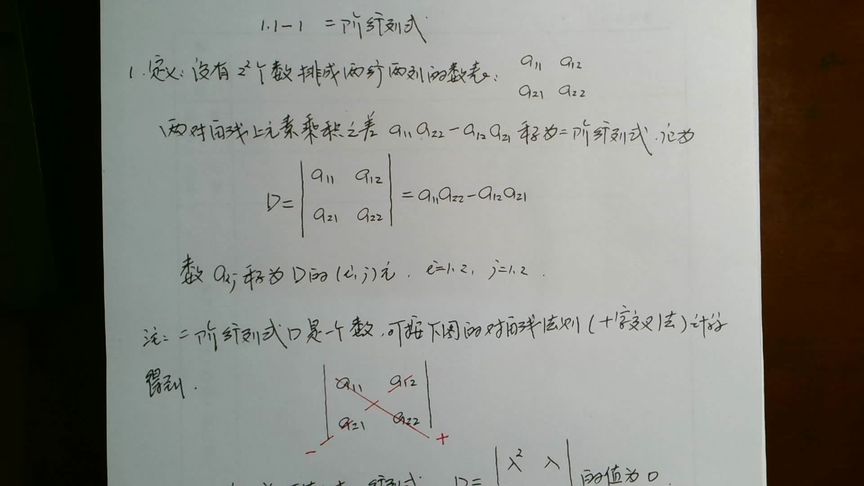 1.1-1 二阶行列式
1.定义:设有2²个数排成两行两列的数表: a11 a12
a21 a22
两对角线上元素乘积之差 a11a22-a12a21 称为二阶行列式.记为
D= | a11 a12 | = a11a22-a12a21
| a21 a22 |
数 aij 称为D的(i,j)元. i=1.2, j=1.2.
注:二阶行列式D是一个数,可按下图的对角线法则(十字交叉法)计算
得到.
| a11 a12 |
| a21 a22 |
- +
行列式 D= | λ² λ | 的值为0